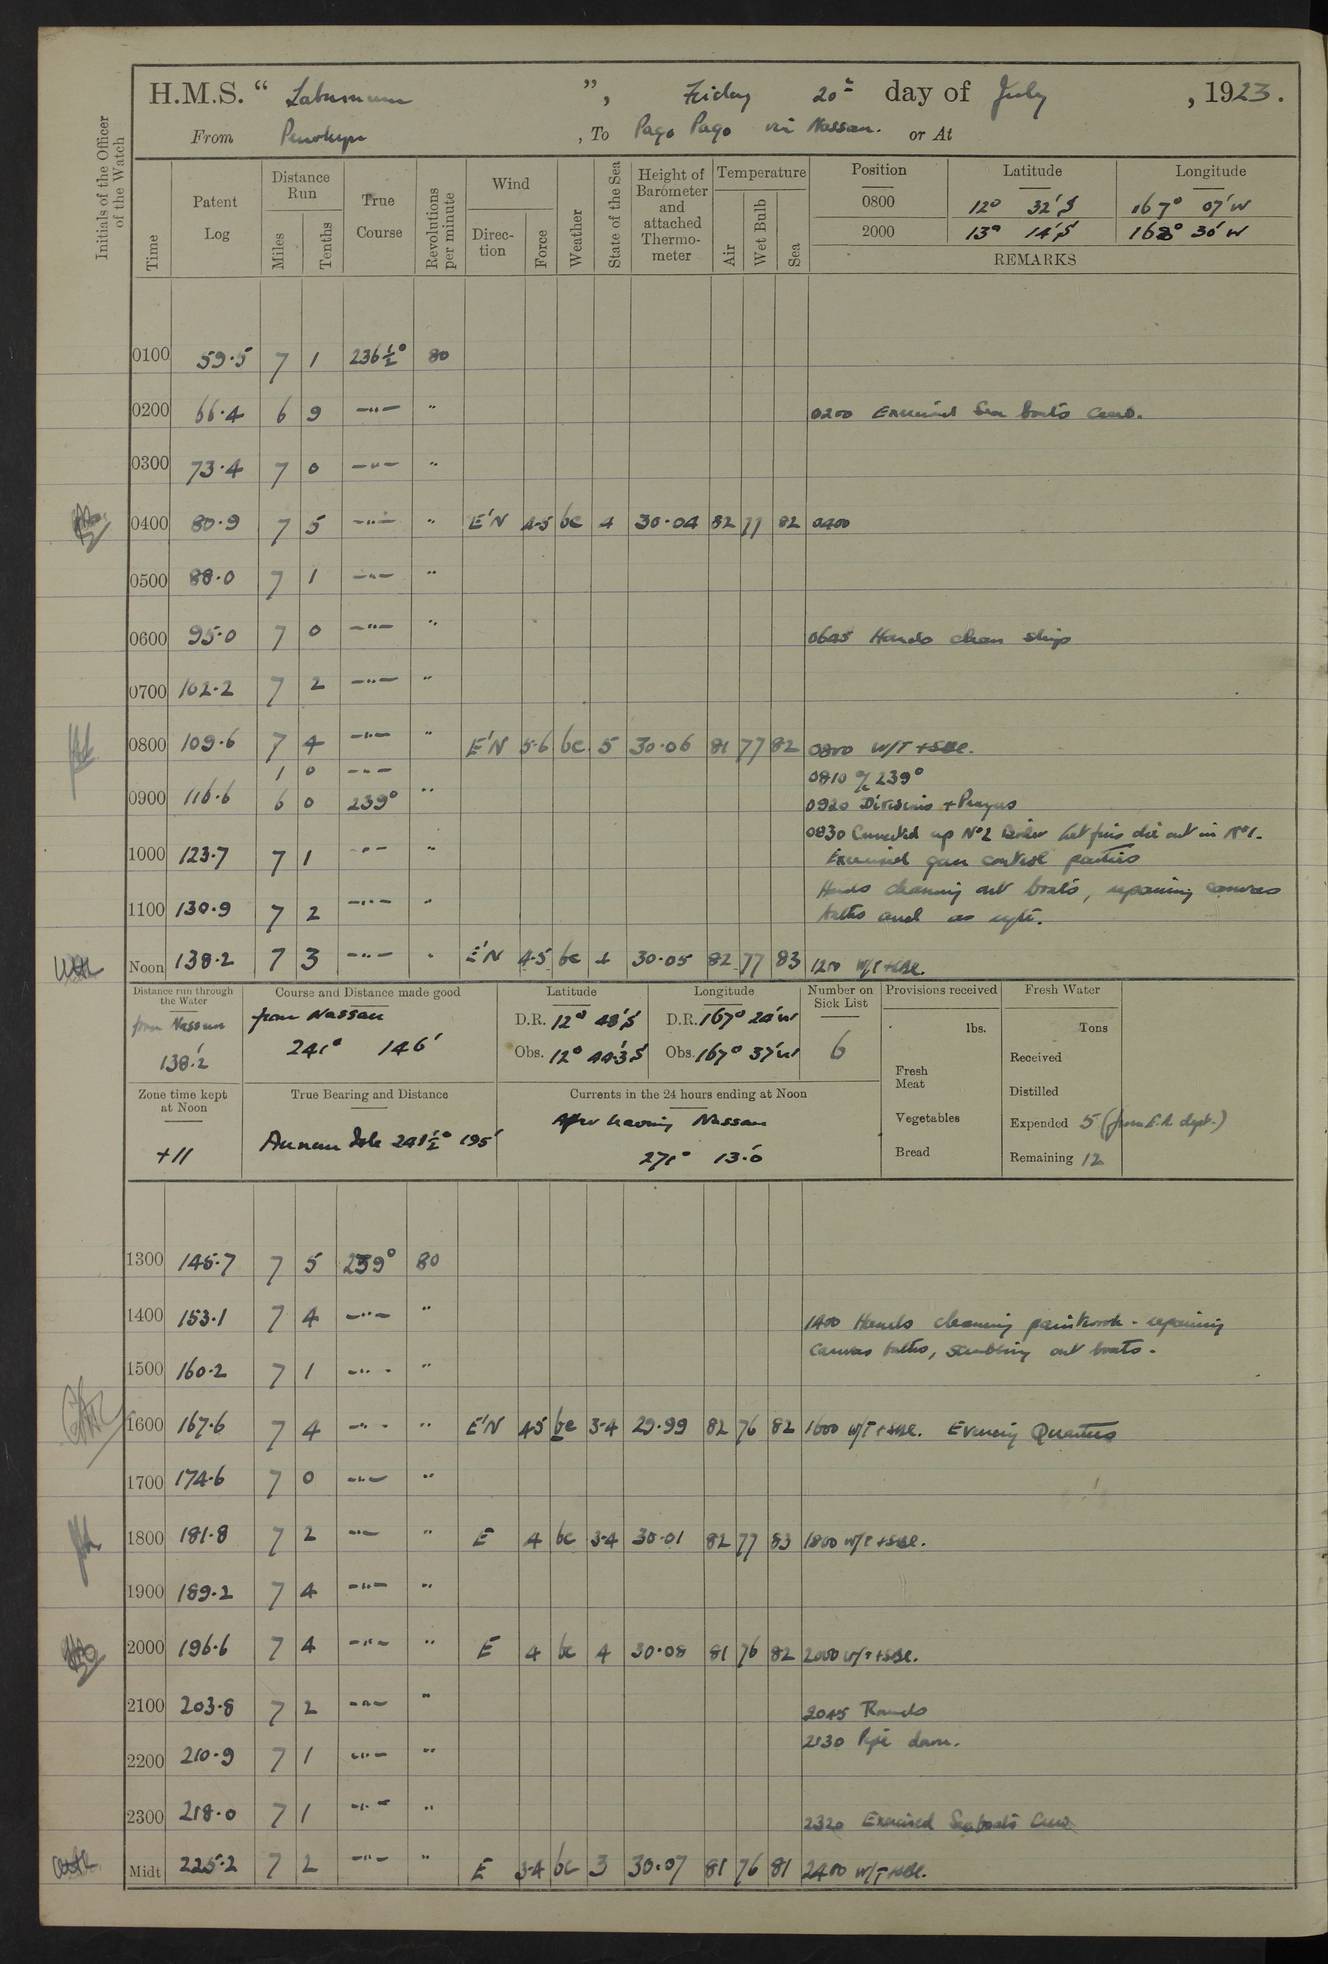 H.M.S. “ Laburnum ”, Friday 20th day of July, 1923.
From Penrhyn, To Pago Pago via Nassau. or At
Initials of the Officer of the Watch
Time Patent Log Distance Run Miles Tenths True Course Revolutions per minute Wind Direction Force Weather State of the Sea Height of Barometer and attached Thermometer Temperature Air Wet Bulb Sea
Position Latitude Longitude
0800 12° 32' S 167° 07' W
2000 13° 14' S 168° 30' W
REMARKS
0100 59.5 7 1 236½° 80
0200 66.4 6 9 —"— " 0200 Exercised Sea boats crew.
0300 73.4 7 0 —"— "
0400 80.9 7 5 —"— " E'N 4-5 bc 4 30.04 82 77 82 0400
0500 88.0 7 1 —"— "
0600 95.0 7 0 —"— " 0645 Hands clean ship
0700 102.2 7 2 —"— "
0800 109.6 7 4 —"— " E'N 5-6 bc 5 30.06 81 77 82 0800 W/T + SBL.
1 0 —"— 0810 a/c 239°
0900 116.6 6 0 239° " 0920 Divisions + Prayers
0930 Connected up No 2 Boiler let fires die out in No 1.
1000 123.7 7 1 —"— " Exercised gun control parties
Hands cleaning out boats, repairing canvas
1100 130.9 7 2 —"— " baths and as reqte.
Noon 138.2 7 3 —"— " E'N 4-5 bc 4 30.05 82 77 83 1200 W/T + SBL.
Distance run through the Water Course and Distance made good Latitude Longitude Number on Sick List Provisions received Fresh Water
from Nassau 138.2
from Nassau 241° 146'
D.R. 12° 48' S D.R. 167° 20' W
Obs. 12° 44.3 S Obs. 167° 37' W
6
lbs. Tons
Fresh Meat
Vegetables
Bread
Received
Distilled
Expended 5 (from E.R. dept.)
Remaining 12
Zone time kept at Noon True Bearing and Distance Currents in the 24 hours ending at Noon
+11
Annuu Isle 241½° 195'
After leaving Nassau
271° 13.0
1300 145.7 7 5 239° 80
1400 153.1 7 4 —"— " 1400 Hands cleaning paintwork - repairing
canvas baths, scrubbing out boats.
1500 160.2 7 1 —"— "
1600 167.6 7 4 —"— " E'N 4-5 bc 3-4 29.99 82 76 82 1600 W/T + SBL. Evening Quarters
1700 174.6 7 0 —"— "
1800 181.8 7 2 —"— " E 4 bc 3-4 30.01 82 77 83 1800 W/T + SBL.
1900 189.2 7 4 —"— "
2000 196.6 7 4 —"— " E 4 bc 4 30.08 81 76 82 2000 W/T + SBL.
2100 203.8 7 2 —"— " 2045 Rounds
2130 Pipe down.
2200 210.9 7 1 —"— "
2300 218.0 7 1 —"— " 2320 Exercised Seaboats Crew
Midt 225.2 7 2 —"— " E 3-4 bc 3 30.07 81 76 81 2400 W/T + SBL.